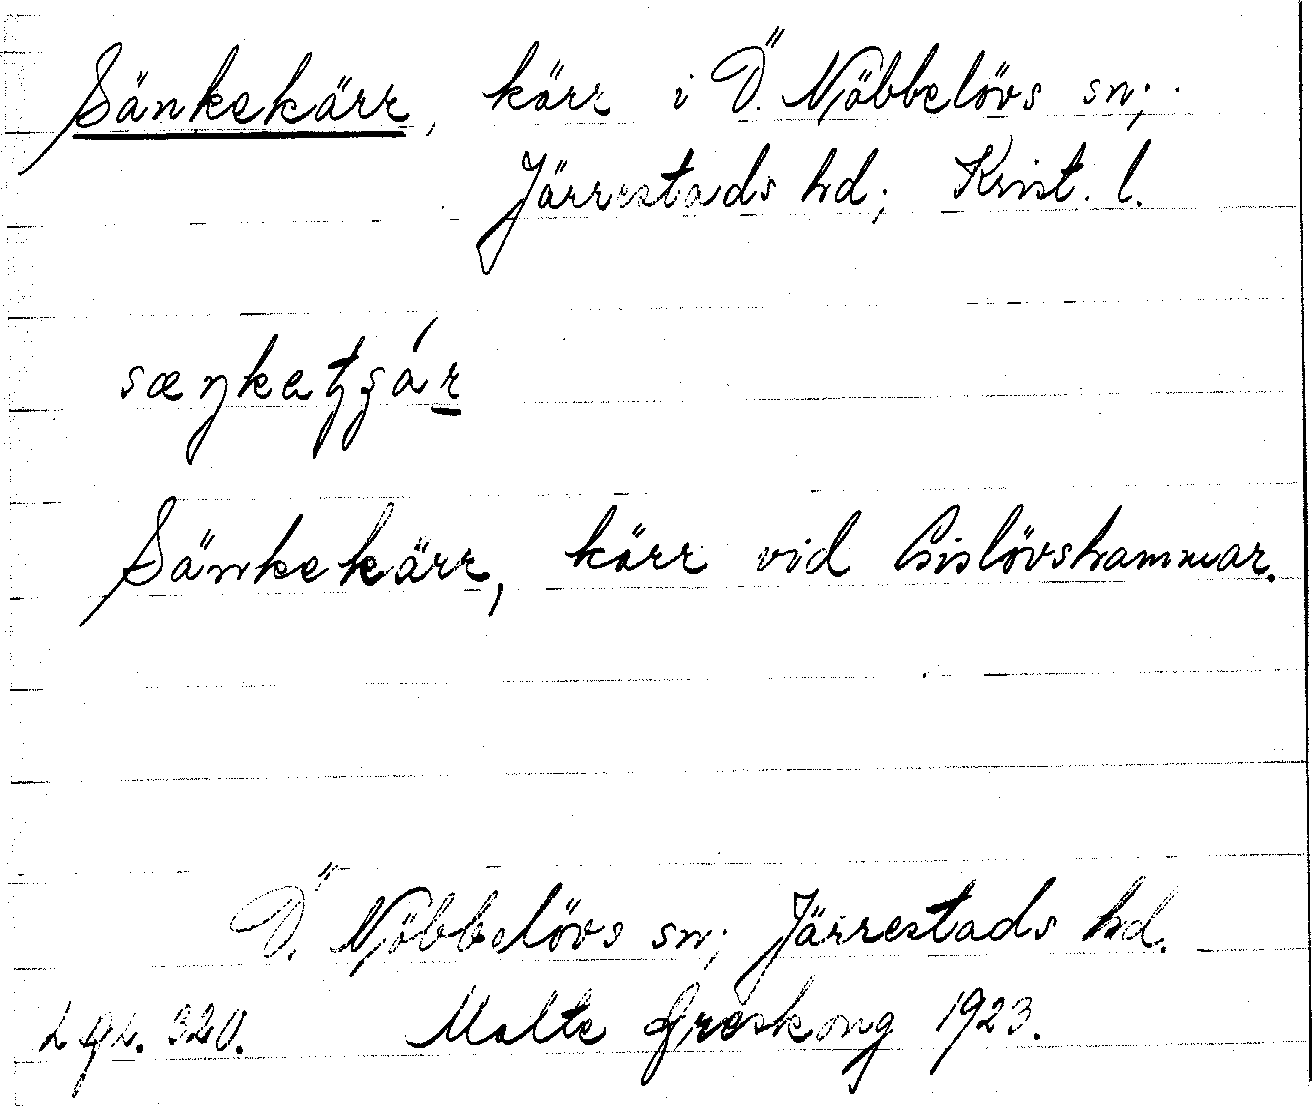 Sänkekärr, kärr i Ö. Nöbbelövs sn;
Järrestads hd; Krist. l.
Sänkekärr, kärr vid Gislövshammar.
Ö. Nöbbelövs sn; Järrestads hd.
320. Malte 1923.